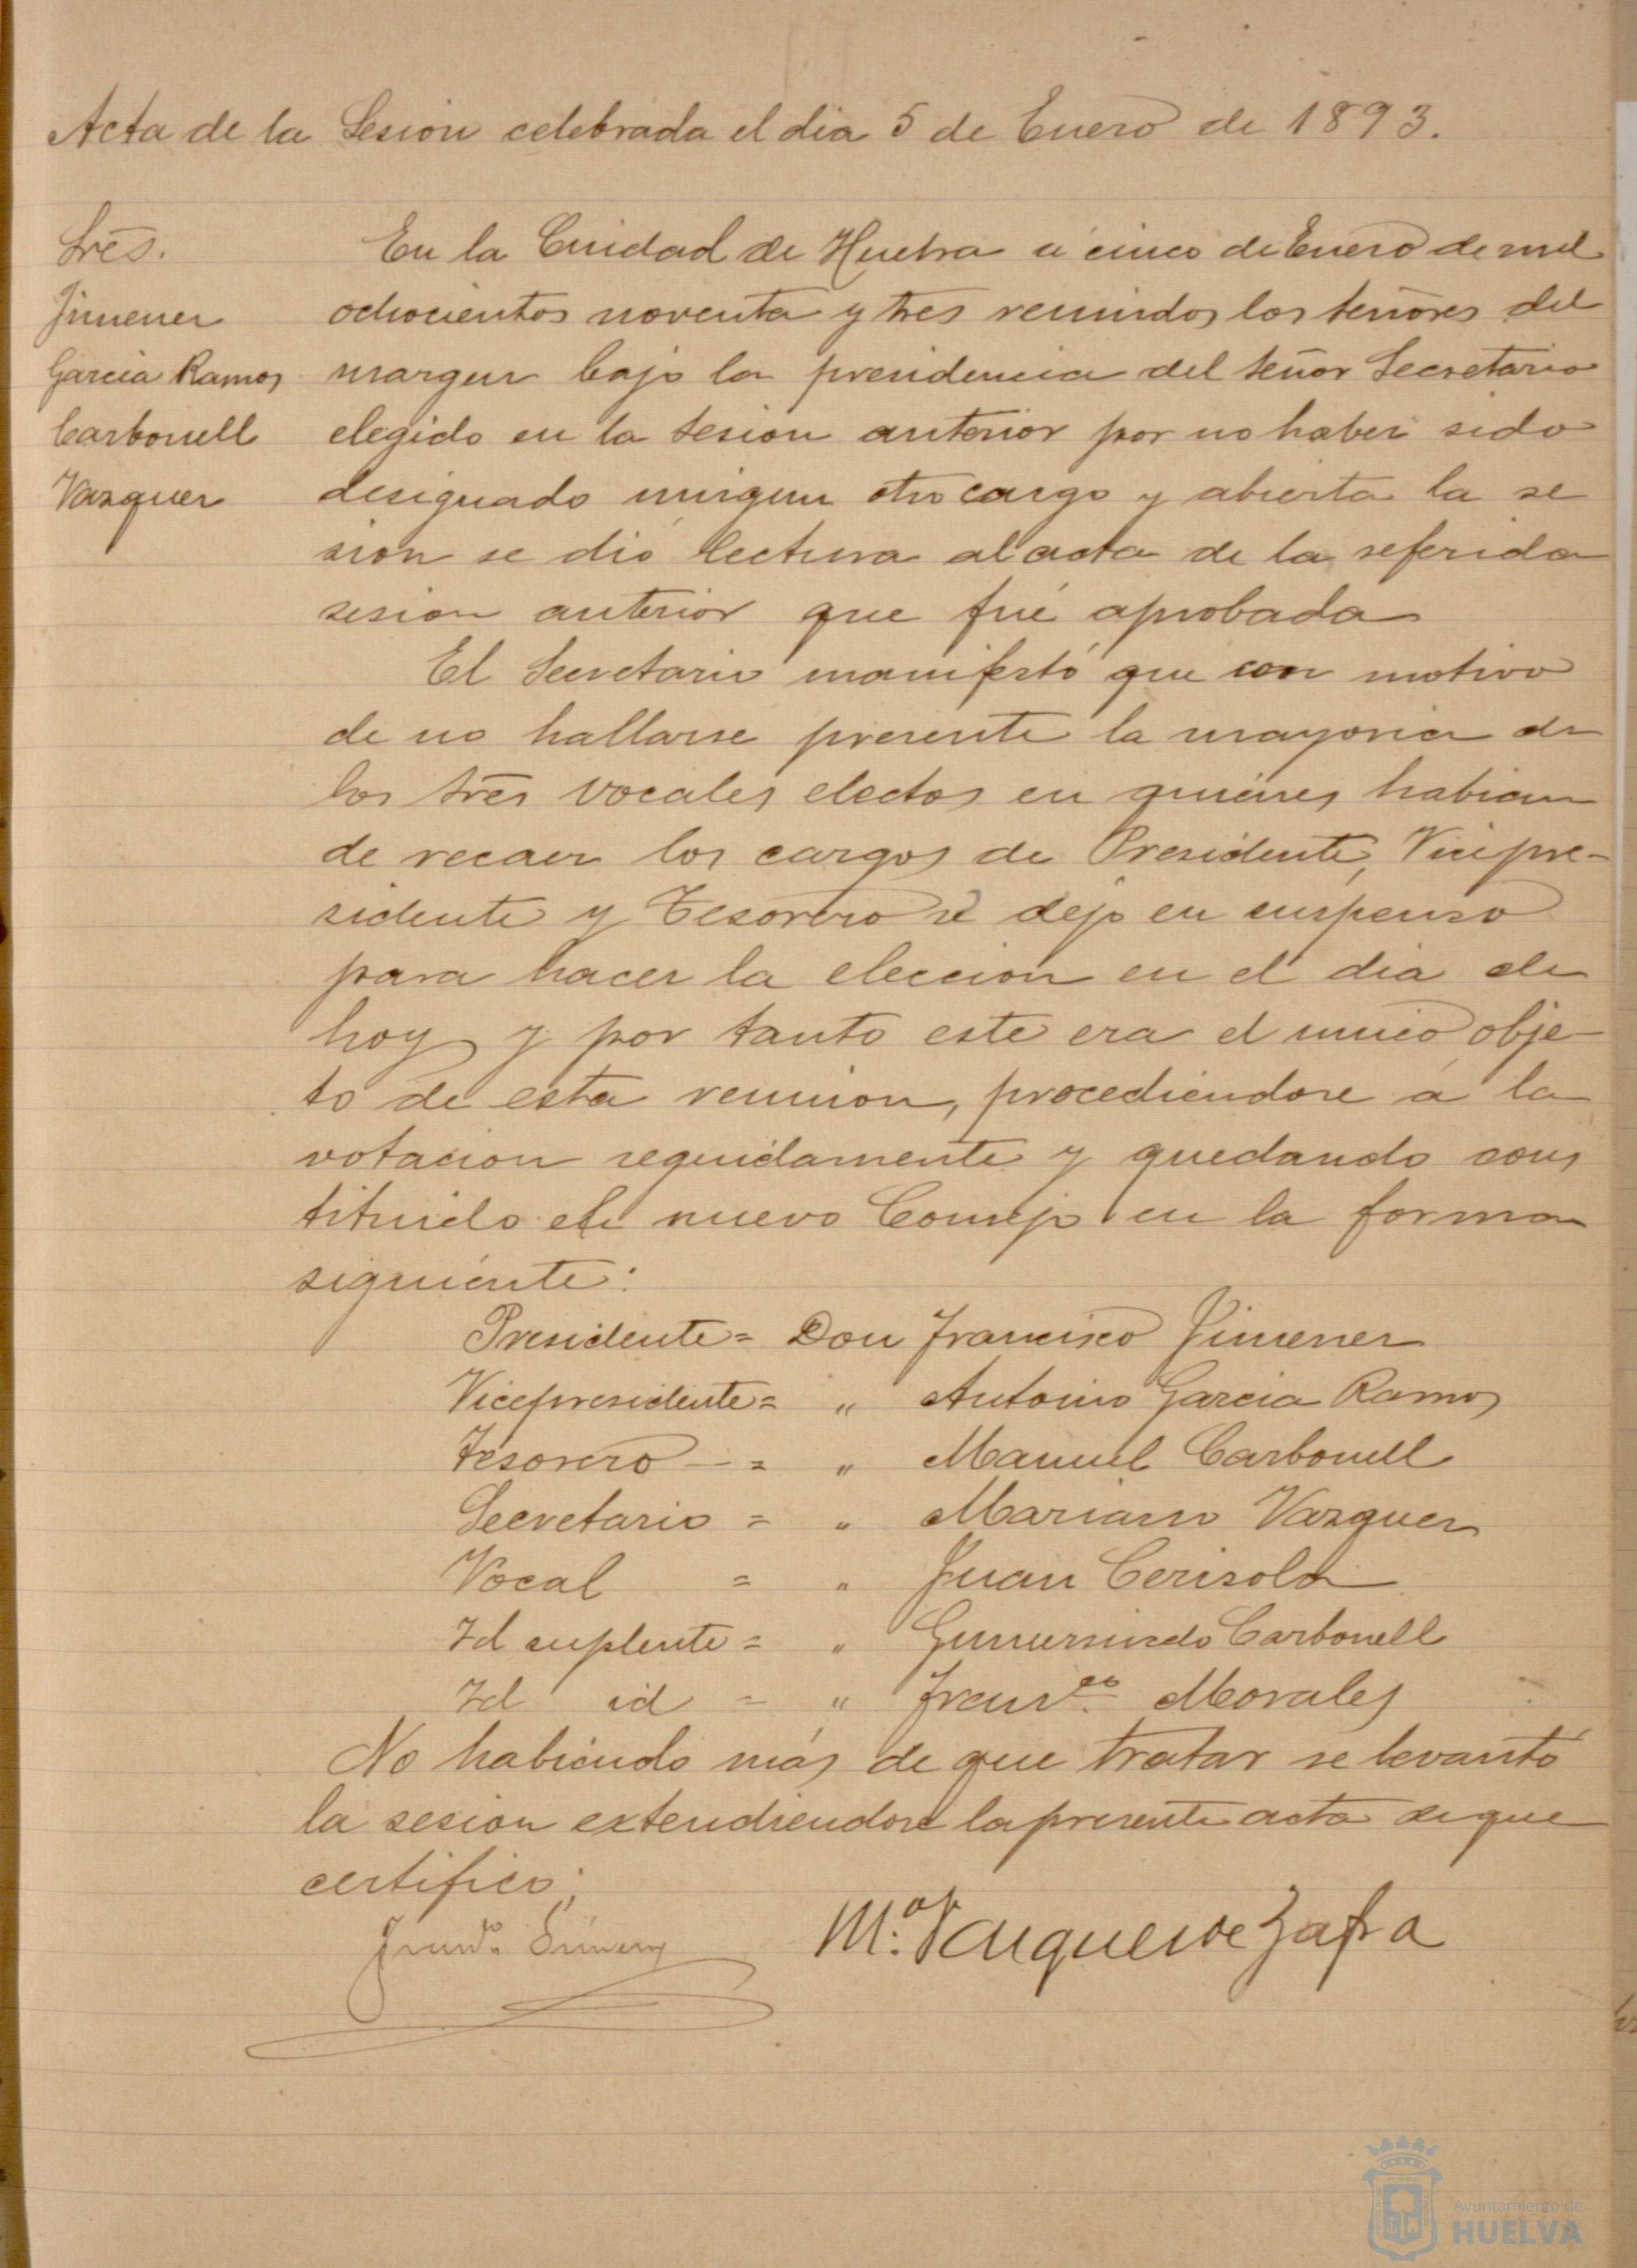 Acta de la Sesion celebrada el dia 5 de Enero de 1893.
Sres.
Jimenez
Garcia Ramos
Carbonell
Vazquez
En la Ciudad de Huelva á cinco de Enero de mil
ochocientos noventa y tres reunidos los señores del
margen bajo la presidencia del señor Secretario
elegido en la sesion anterior por no haber sido
designado ningun otro cargo y abierta la se
sion se dió lectura al acta de la referida
sesion anterior que fué aprobada
El Secretario manifestó que con motivo
de no hallarse presente la mayoria de
los tres vocales electos en quienes habian
de recaer los cargos de Presidente, Vicepre-
sidente y Tesorero se dejo en suspenso
para hacer la eleccion en el dia de
hoy y por tanto este era el unico obje-
to de esta reunion, procediendose á la
votacion seguidamente y quedando cons
tituido el nuevo Consejo en la forma
siguiente:
Presidente = Don Francisco Jimenez
Vicepresidente = " Antonio Garcia Ramos
Tesorero — = " Manuel Carbonell
Secretario = " Mariano Vazquez
Vocal = " Juan Cerisola
Id suplente = " Gumersindo Carbonell
Id id = " Franco. Morales
No habiendo más de que tratar se levantó
la sesion extendiendose la presente acta de que
certifico;
Franco. Jimenez
Mo. Vazquez de Zafra
Ayuntamiento de
HUELVA